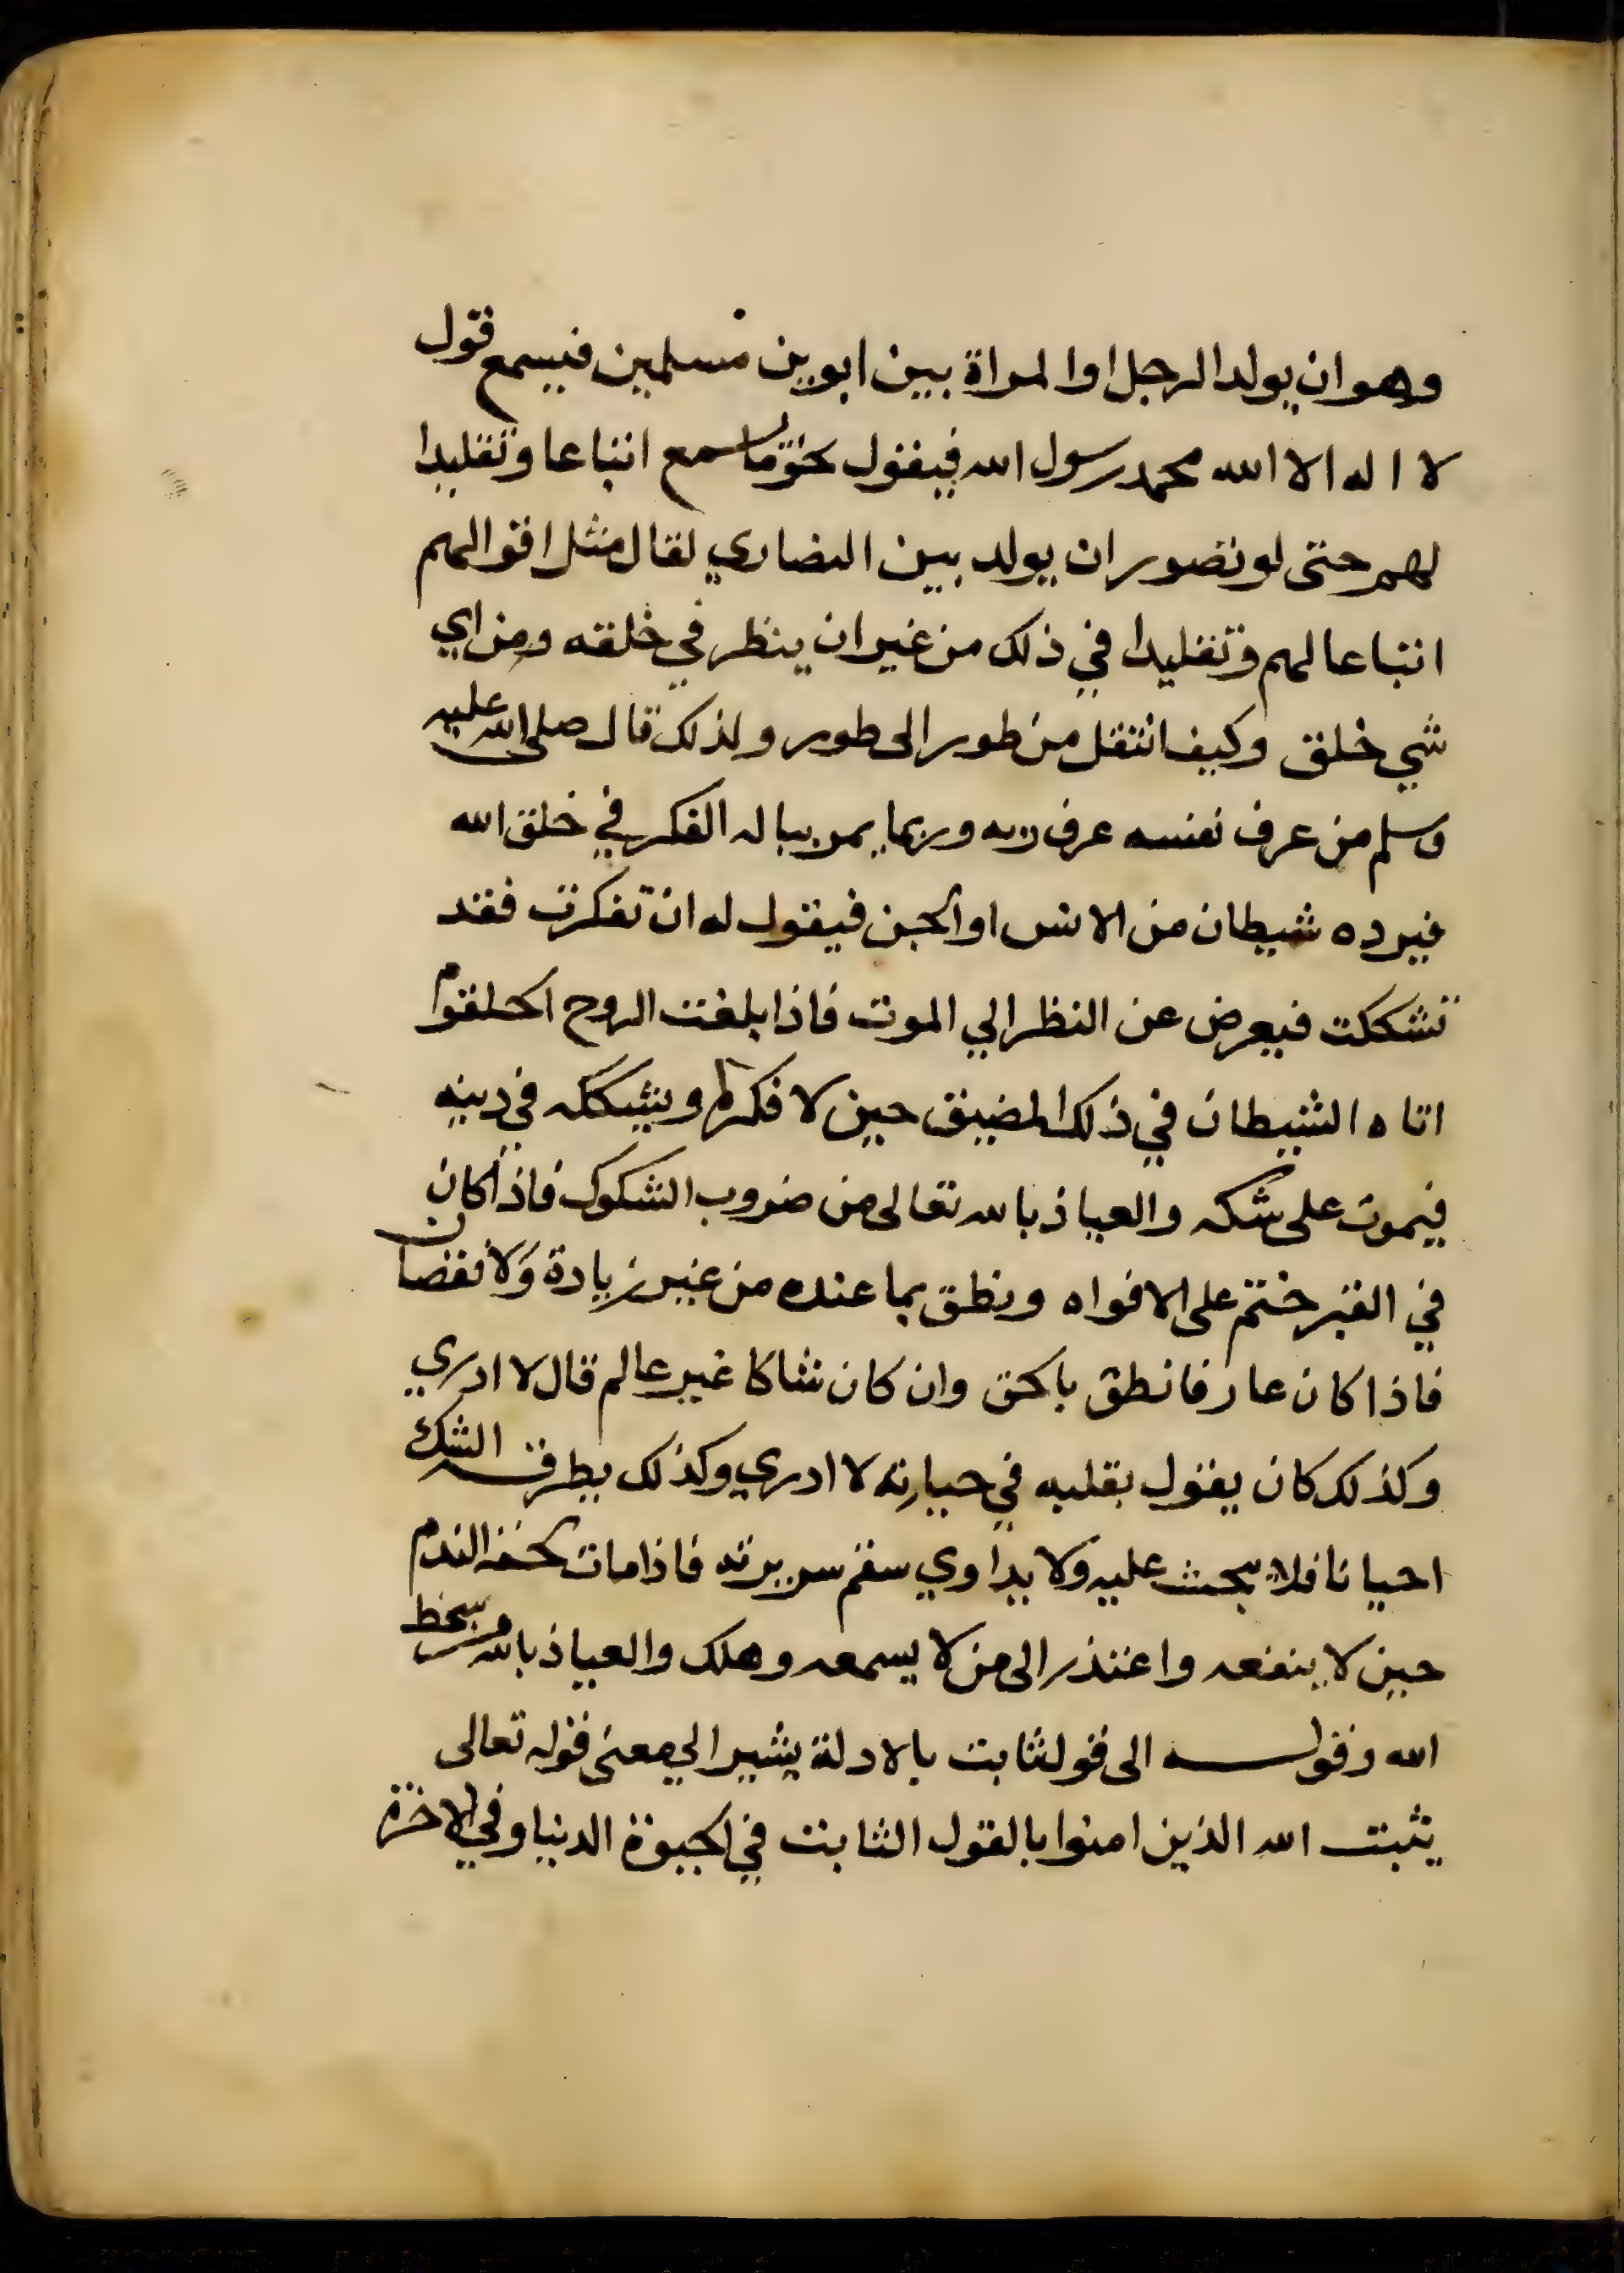 وهو ان يولد الرجل او المراة بين ابوين مسلمين فيسمع قول
لا اله الا الله محمد رسول الله فيقول نحو ما سمع اتباعا وتقليدا
لهم حتى لو تصور ان يولد بين النصاري لقال مثل اقوالهم
اتباعا لهم وتقليدا في ذلك من غير ان ينظر في خلقه ومن اي
شي خلق وكيف انتقل من طور الى طور ولذلك قال صلى الله عليه
وسلم من عرف نفسه عرف ربه وربما يمر بباله الفكر في خلق الله
فيرده شيطان من الانس او الجن فيقول له ان تفكرت فقد
تشككت فيعرض عن النظر الي الموت فاذا بلغت الروح الحلقوم
اتاه الشيطان في ذلك المضيق حين لا فكر له ويشككه في دينه
فيموت على شكه والعياذ بالله تعالى من ضروب الشكوك فاذا كان
في القبر ختم على الافواه ونطق بما عنده من غير زيادة ولا نقصان
فاذا كان عارفا نطق بالحق وان كان شاكا غير عالم قال لا ادري
وكذلك كان يقول بقلبه في حياته لا ادري وكذلك يطرقه الشك
احيانا فلا يبحث عليه ولا يداوي سقم سريرته فاذا مات لحقه الندم
حين لا ينفعه واعتذر الى من لا يسمعه وهلك والعياذ بالله من سخط
الله وقوله الى قول ثابت بالادلة يشير الي معنى قوله تعالى
يثبت الله الذين امنوا بالقول الثابت في الحيوة الدنيا وفي الاخرة